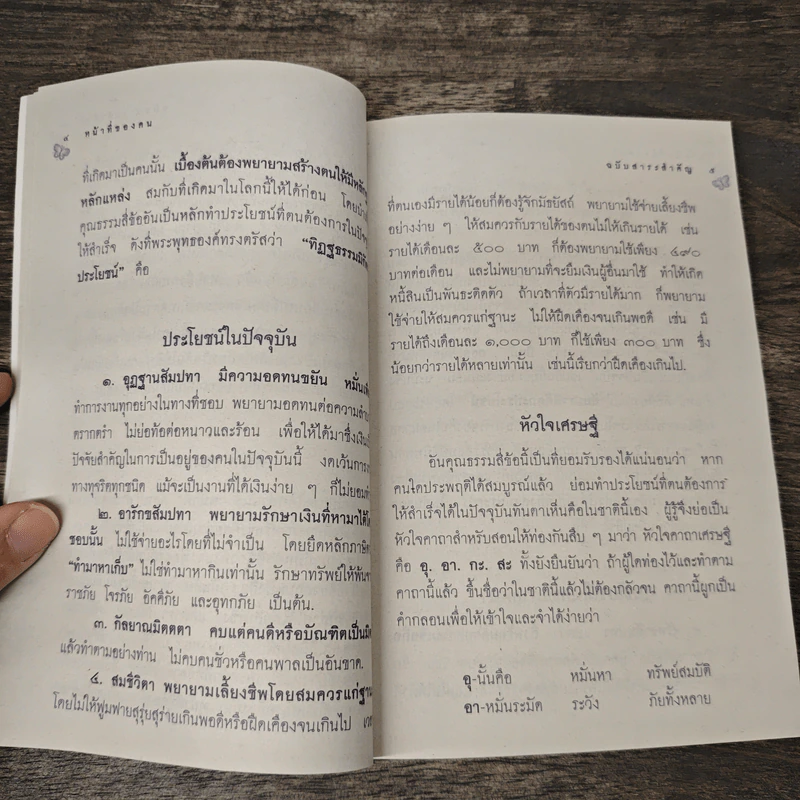 ๔ หน้าที่ของคน
ที่เกิดมาเป็นคนนั้น เบื้องต้นต้องพยายามสร้างตนให้มี
หลักแหล่ง สมกับที่เกิดมาในโลกนี้ให้ได้ก่อน
คุณธรรมสี่ข้ออันเป็นหลักทำประโยชน์ที่ตนต้องการใน
ให้สำเร็จ ดังที่พระพุทธองค์ทรงตรัสว่า
ประโยชน์” คือ
ประโยชน์ในปัจจุบัน
๑. อุฏฐานสัมปทา มีความอดทนขยัน
ทำการงานทุกอย่างในทางที่ชอบ พยายามอดทนต่อความ
ตรากตรำ ไม่ย่อท้อต่อหนาวและร้อน เพื่อให้ได้มาซึ่ง
ปัจจัยสำคัญในการเป็นอยู่ของคนในปัจจุบันนี้ งดเว้นการ
ทางทุจริตทุกชนิด แม้จะเป็นงานที่ได้เงินง่าย ๆ ก็ไม่
๒. อารักขสัมปทา พยายามรักษาเงินที่หามาได้
ชอบนั้น ไม่ใช้จ่ายอะไรโดยที่ไม่จำเป็น โดยยึดหลัก
“ทำมาหาเก็บ” ไม่ใช่ทำมาหากินเท่านั้น รักษาทรัพย์ให้
ราชภัย โจรภัย อัคคีภัย และอุทกภัย เป็นต้น.
๓. กัลยาณมิตตตา คบแต่คนดีหรือบัณฑิตเป็น
แล้วทำตามอย่างท่าน ไม่คบคนชั่วหรือคนพาลเป็นอันขาด.
๔. สมชีวิตา พยายามเลี้ยงชีพโดยสมควรแก่
โดยไม่ให้ฟูมฟายสุรุ่ยสุร่ายเกินพอดีหรือฝืดเคืองจนเกินไป
ฉบับสาระสำคัญ ๕
ที่ตนเองมีรายได้น้อยก็ต้องรู้จักมัธยัสถ์ พยายามใช้จ่ายเลี้ยงชีพ
อย่างง่าย ๆ ให้สมควรกับรายได้ของตนไม่ให้เกินรายได้ เช่น
รายได้เดือนละ ๕๐๐ บาท ก็ต้องพยายามใช้เพียง ๔๙๐
บาทต่อเดือน และไม่พยายามที่จะยืมเงินผู้อื่นมาใช้ ทำให้เกิด
หนี้สินเป็นพันธะติดตัว ถ้าเวลาที่ตัวมีรายได้มาก ก็พยายาม
ใช้จ่ายให้สมควรแก่ฐานะ ไม่ให้ฝืดเคืองจนเกินพอดี เช่น มี
รายได้ถึงเดือนละ ๑,๐๐๐ บาท ก็ใช้เพียง ๓๐๐ บาท ซึ่ง
น้อยกว่ารายได้หลายเท่านั้น เช่นนี้เรียกว่าฝืดเคืองเกินไป.
หัวใจเศรษฐี
อันคุณธรรมสี่ข้อนี้เป็นที่ยอมรับรองได้แน่นอนว่า หาก
คนใดประพฤติได้สมบูรณ์แล้ว ย่อมทำประโยชน์ที่ตนต้องการ
ให้สำเร็จได้ในปัจจุบันทันตาเห็นคือในชาตินี้เอง ผู้รู้จึงย่อเป็น
หัวใจคาถาสำหรับสอนให้ท่องกันสืบ ๆ มาว่า หัวใจคาถาเศรษฐี
คือ อุ. อา. กะ. สะ ทั้งยังยืนยันว่า ถ้าผู้ใดท่องไว้และทำตาม
คาถานี้แล้ว ขึ้นชื่อว่าในชาตินี้แล้วไม่ต้องกลัวจน คาถานี้ผูกเป็น
คำกลอนเพื่อให้เข้าใจและจำได้ง่ายว่า
อุ-นั้นคือ หมั่นหา ทรัพย์สมบัติ
อา-หมั่นระมัด ระวัง ภัยทั้งหลาย